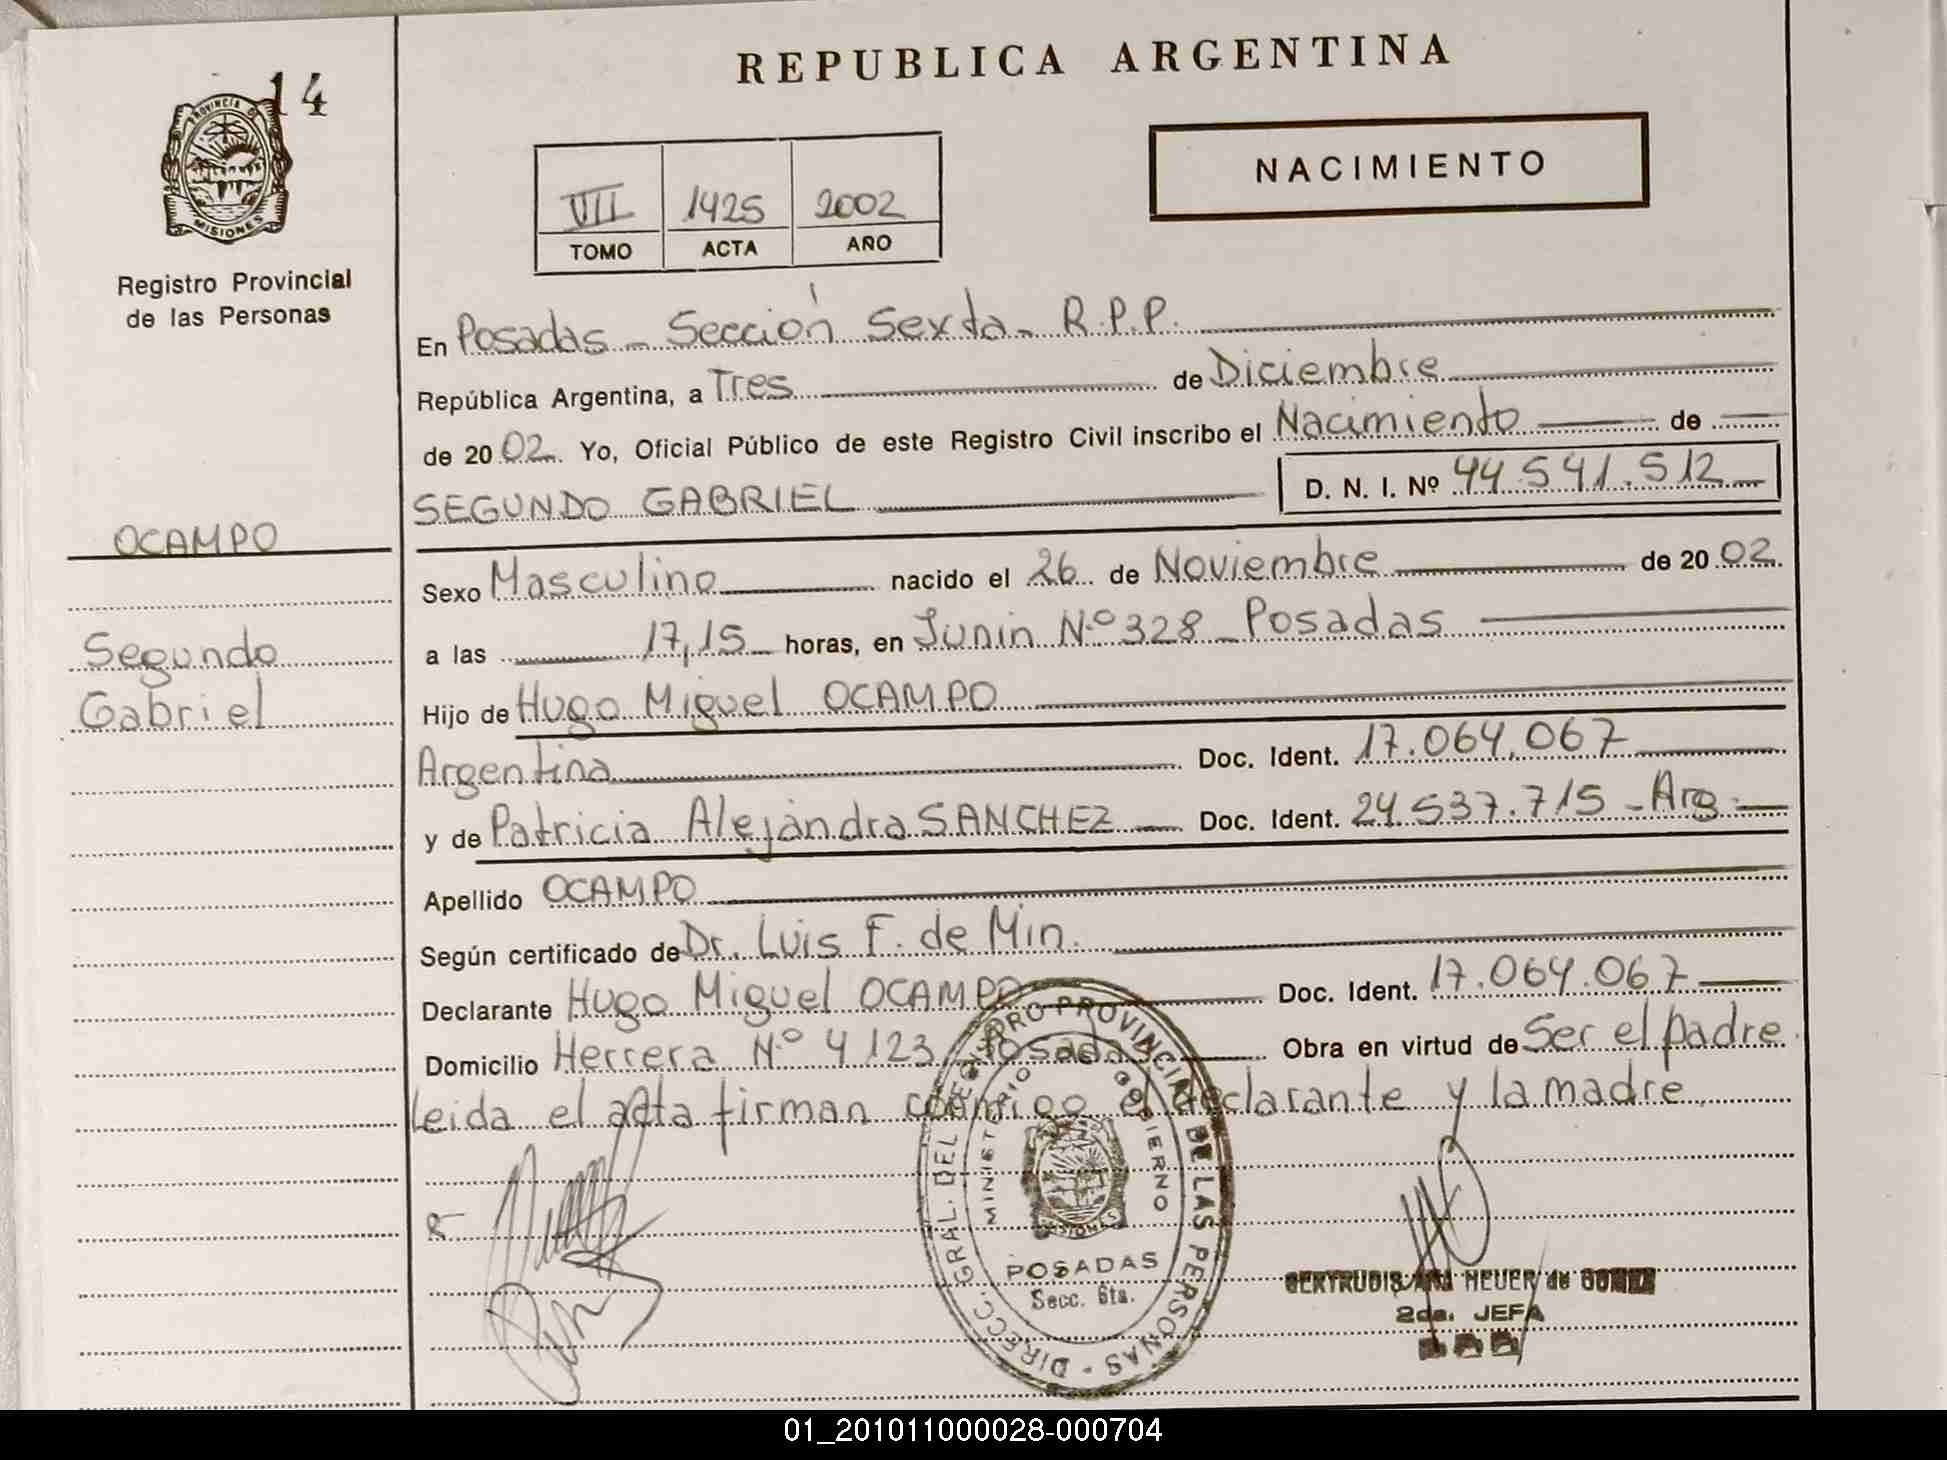 14
PROVINCIA DE
MISIONES
Registro Provincial
de las Personas
OCAMPO
Segundo
Gabriel
REPUBLICA ARGENTINA
VII 1425 2002
TOMO ACTA AÑO
NACIMIENTO
En Posadas - Sección Sexta - R.P.P.
República Argentina, a Tres de Diciembre
de 20 02. Yo, Oficial Público de este Registro Civil inscribo el Nacimiento de
SEGUNDO GABRIEL D. N. I. Nº 44.541.512
Sexo Masculino nacido el 26 de Noviembre de 20 02.
a las 17,15 horas, en Junin Nº 328 - Posadas
Hijo de Hugo Miguel OCAMPO
Argentina Doc. Ident. 17.064.067
y de Patricia Alejandra SANCHEZ Doc. Ident. 24.537.715 - Arg.
Apellido OCAMPO
Según certificado de Dr. Luis F. de Min.
Declarante Hugo Miguel OCAMPO Doc. Ident. 17.064.067
Domicilio Herrera Nº 4123 - Posadas Obra en virtud de Ser el padre.
Leida el acta firman conmigo el declarante y la madre.
DIRECC. GRAL. DEL REGISTRO PROVINCIAL DE LAS PERSONAS -
MINISTERIO DE GOBIERNO
MISIONES
POSADAS
Secc. 6ta.
GERTRUDIS ANA HEUER de
2da. JEFA
01_201011000028-000704